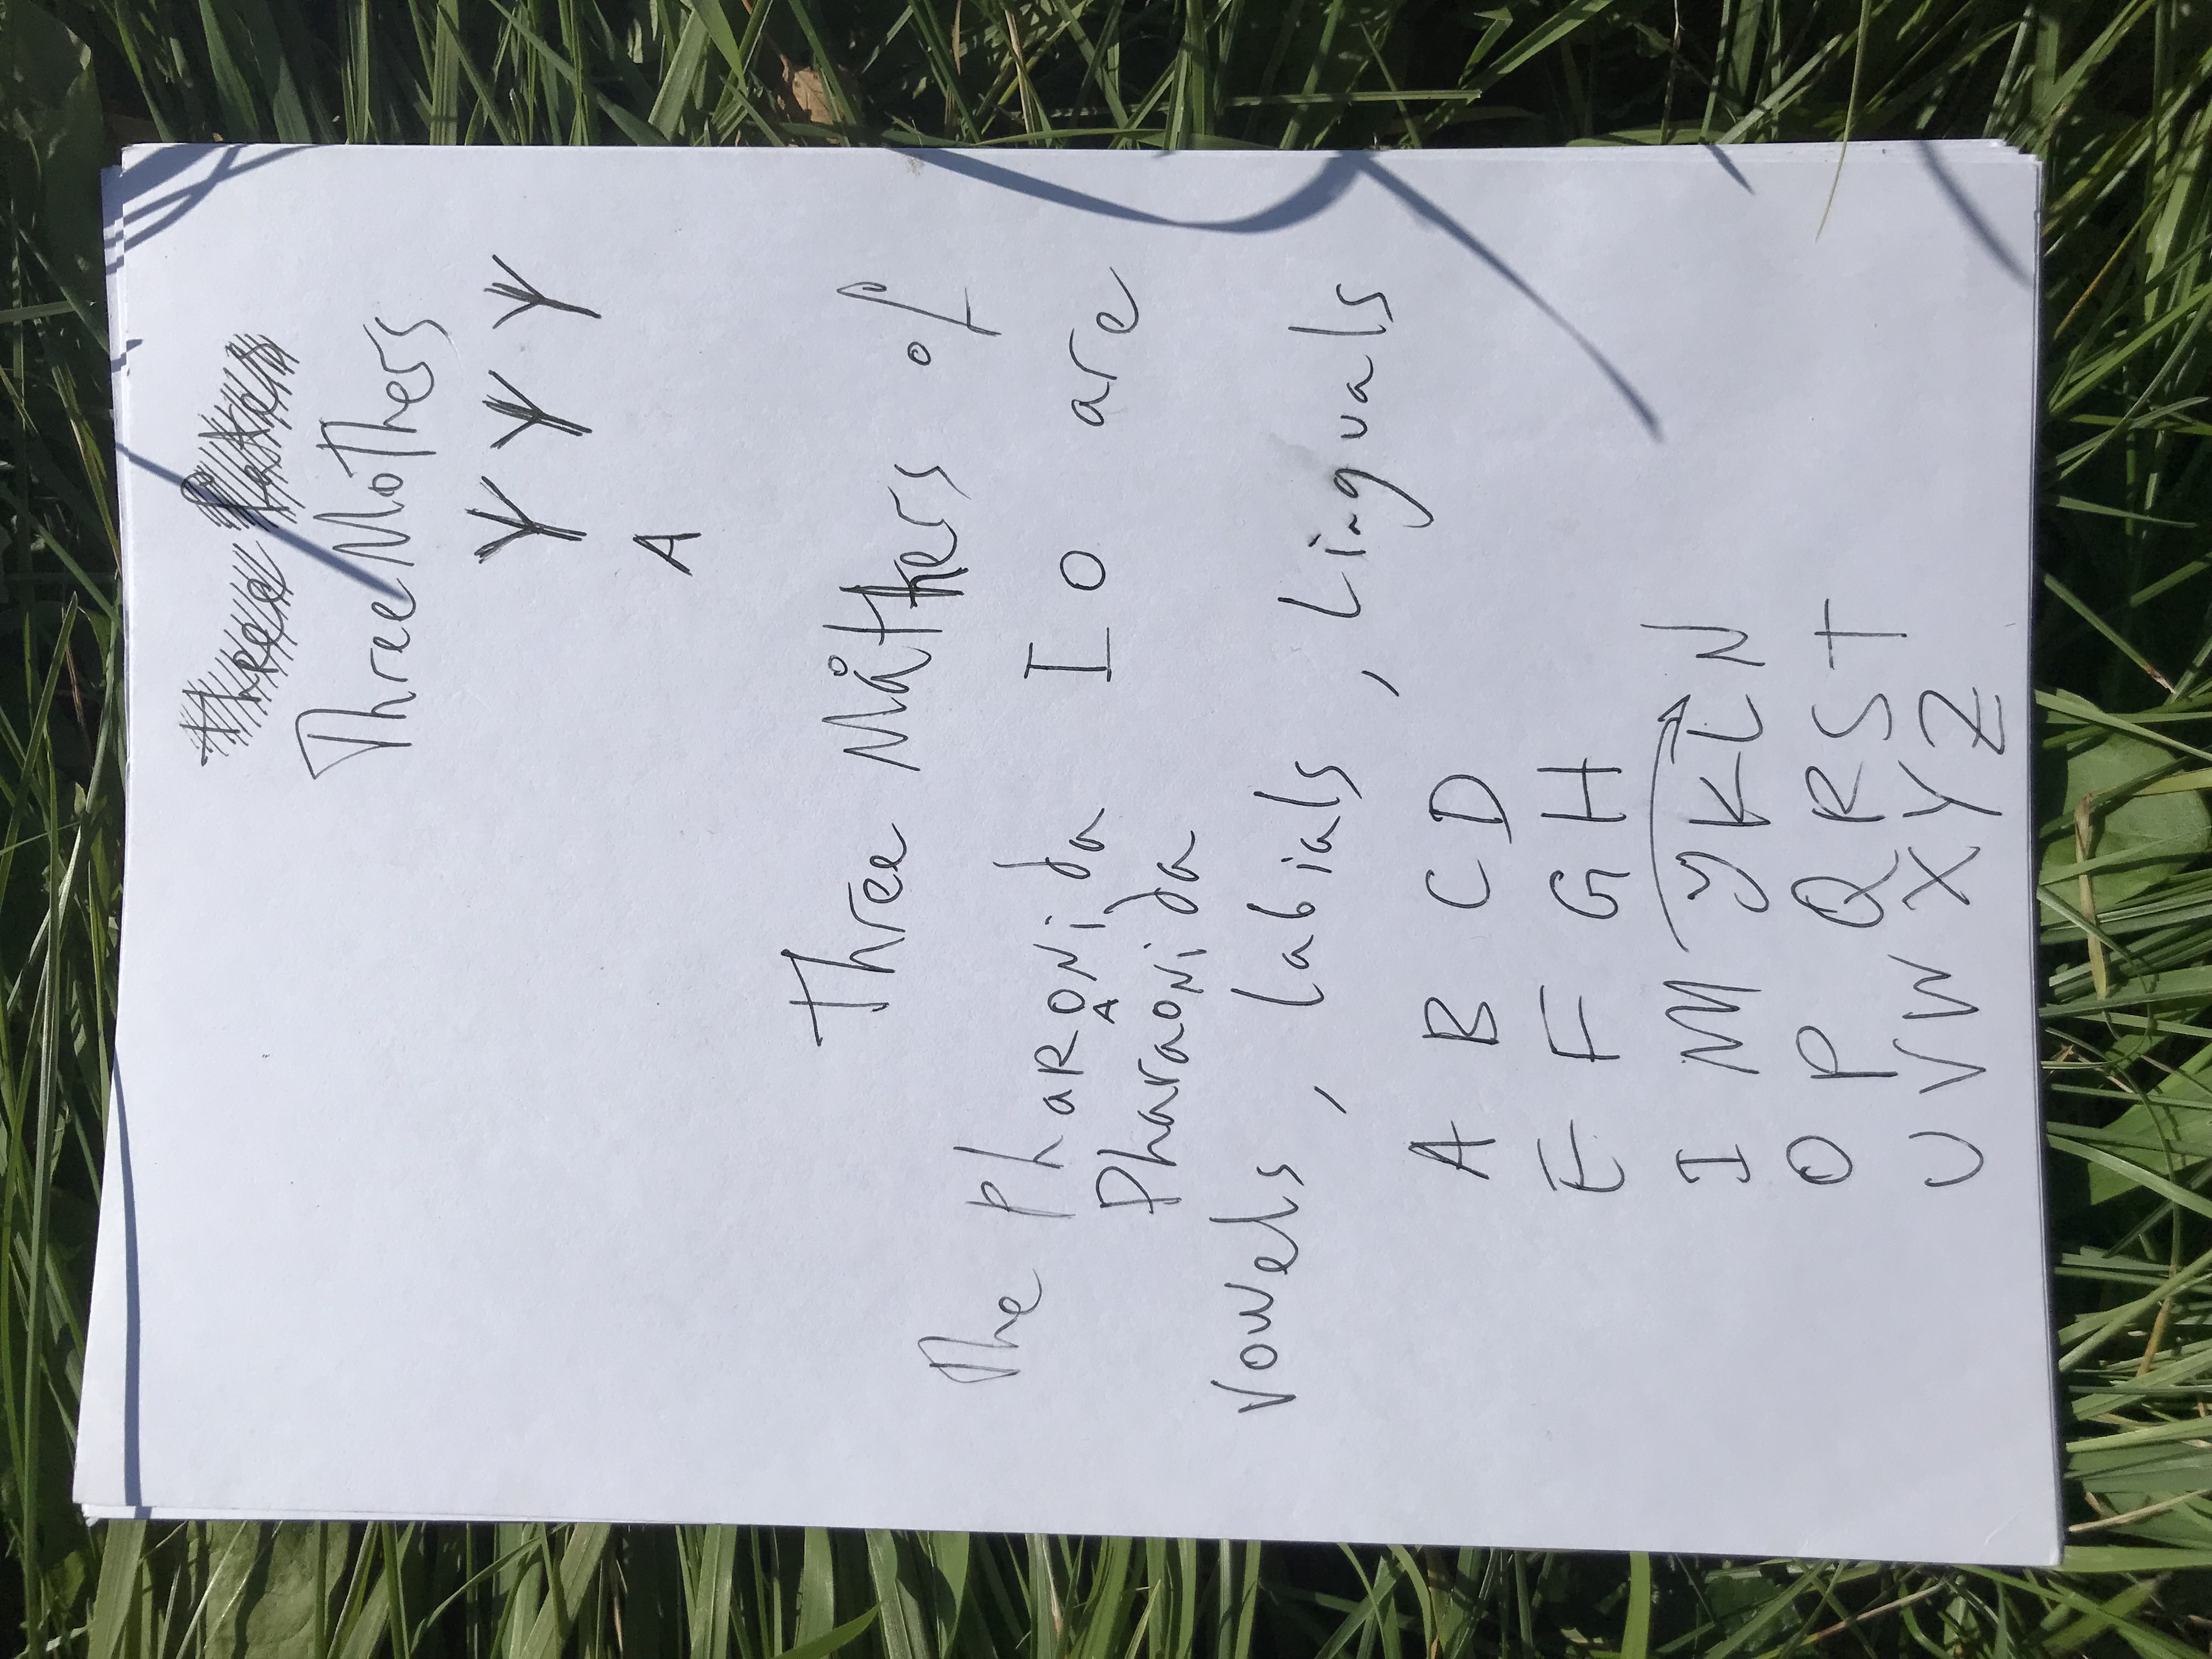 Three Mothers
Y Y Y
A
Three Måthers of
The PhaRONida I O are
A
Pharaonida
Vowels, Labials, Linguals
A B C D
E F G H
I M J K L N
O P Q R S T
U V W X Y Z